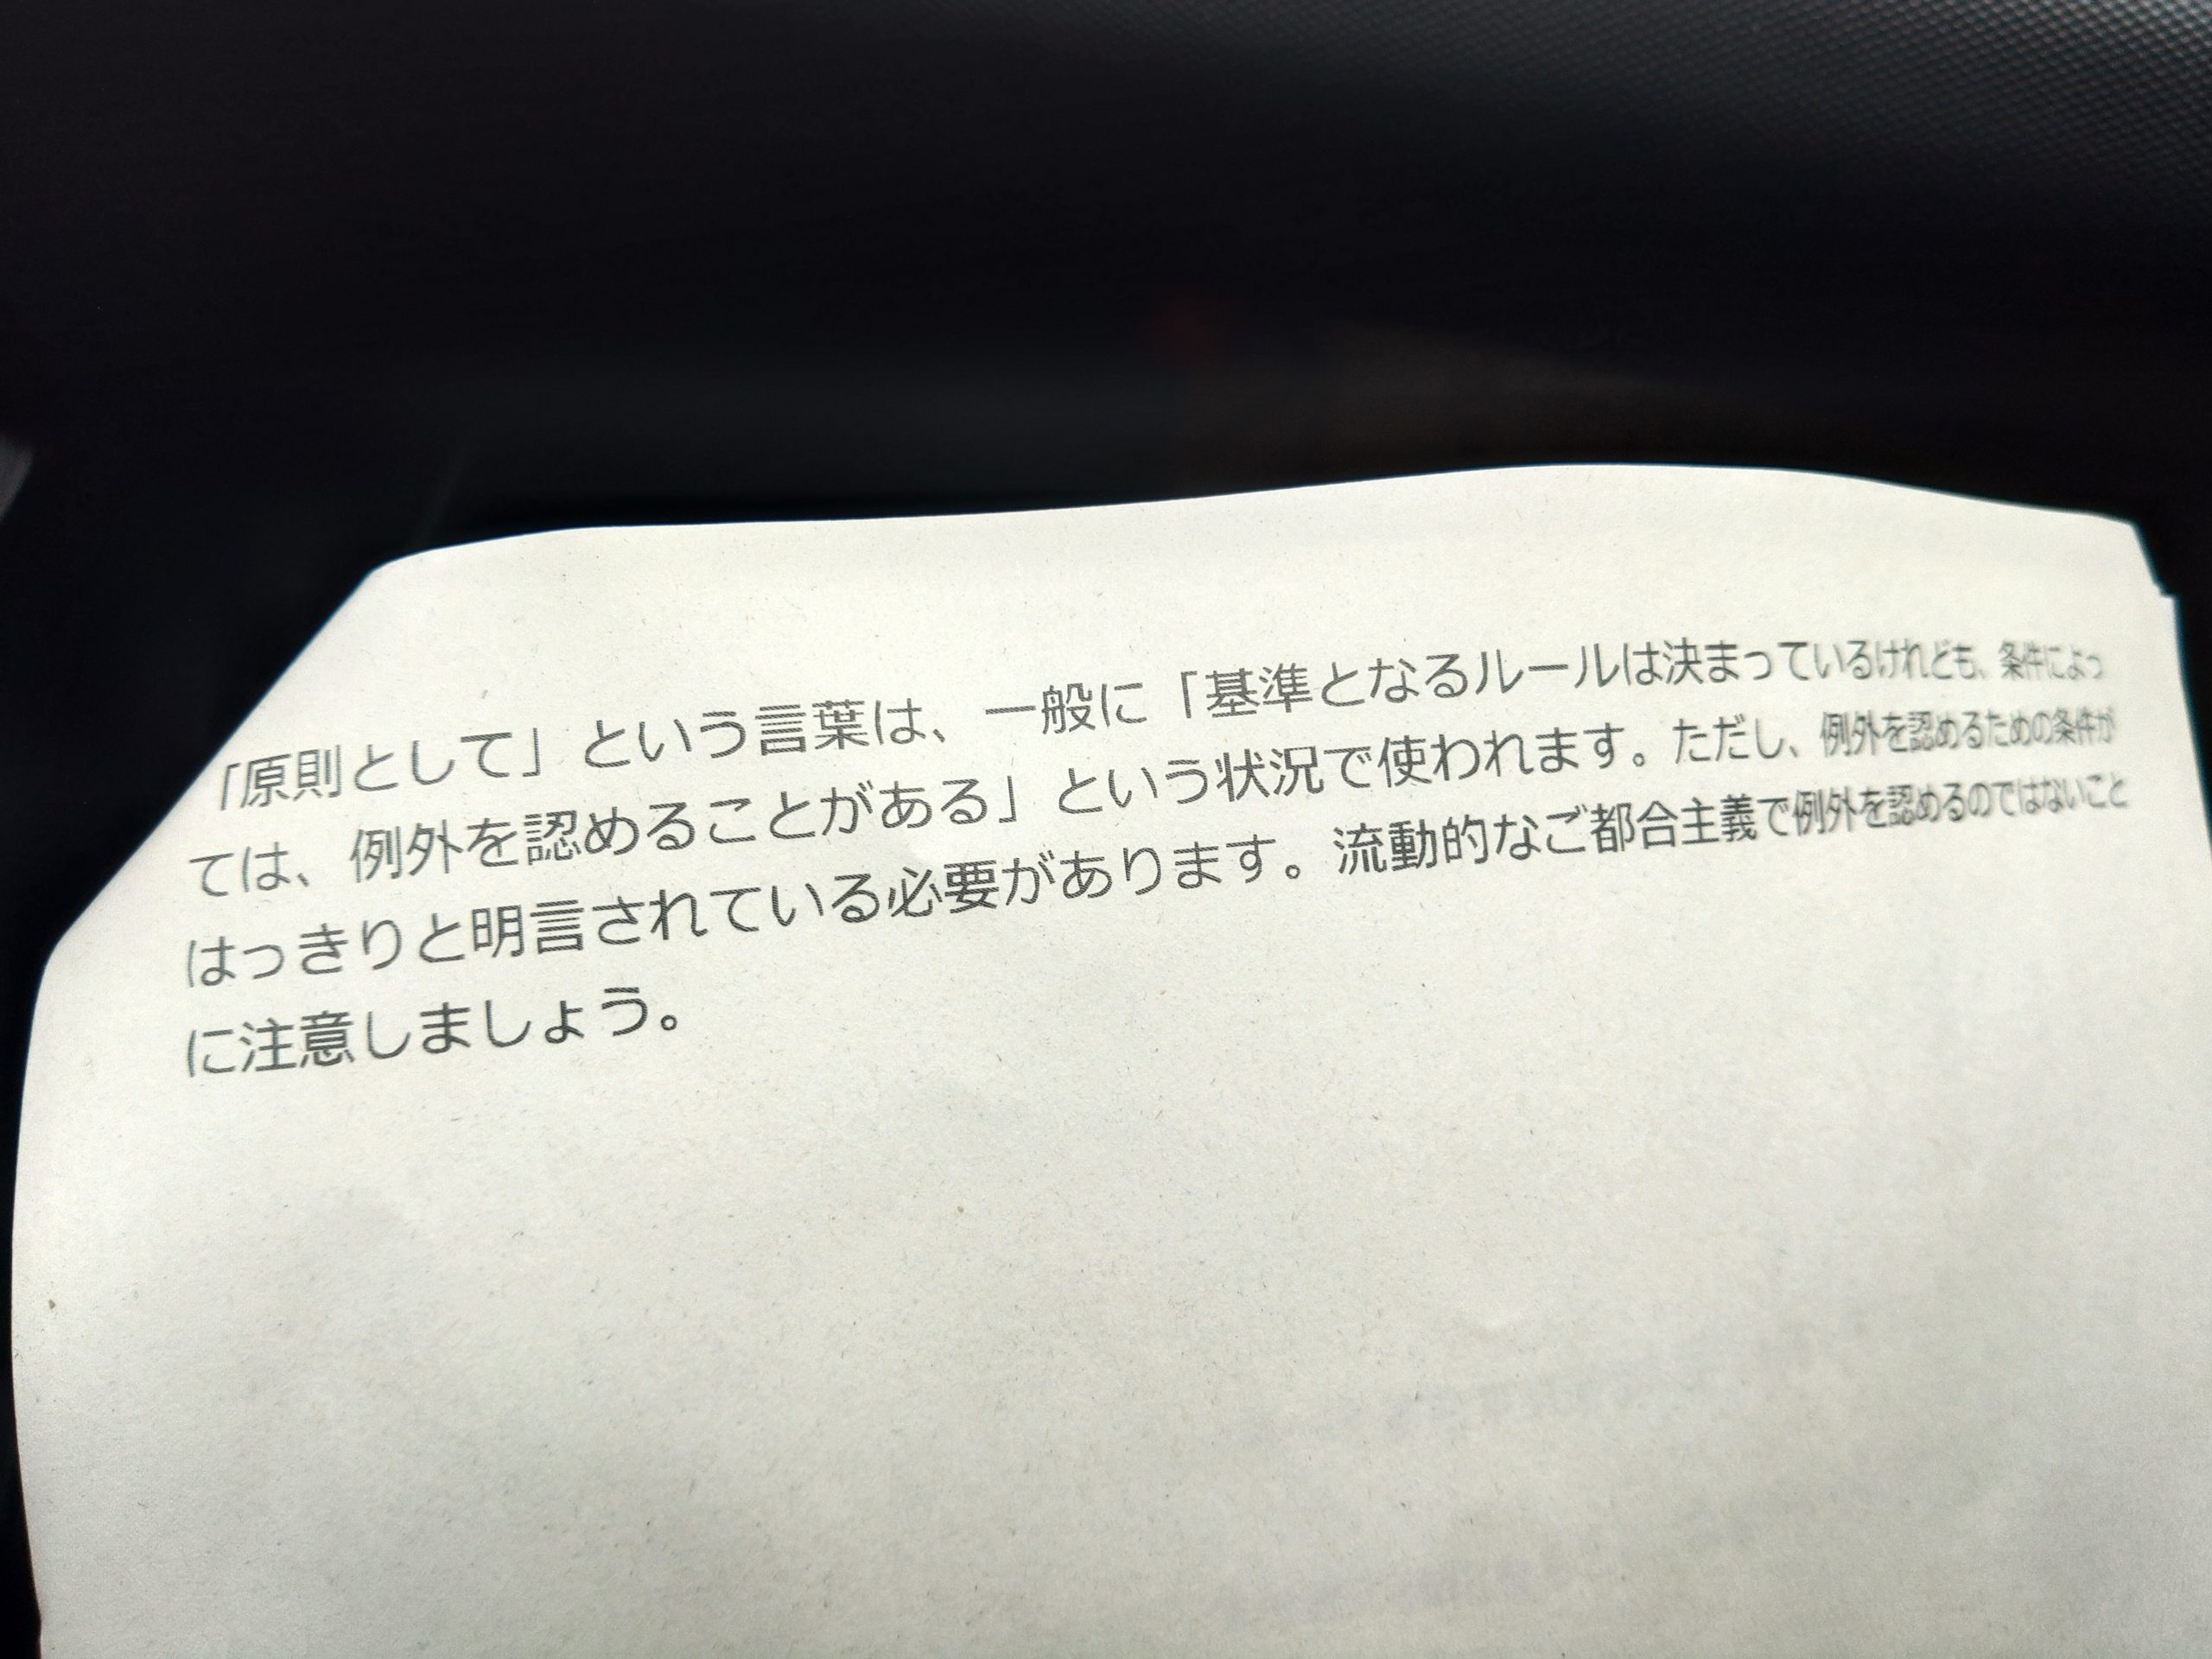 「原則として」という言葉は、一般に「基準となるルールは決まっているけれども、条件によっ
ては、例外を認めることがある」という状況で使われます。ただし、例外を認めるための条件が
はっきりと明言されている必要があります。流動的なご都合主義で例外を認めるのではないこと
に注意しましょう。